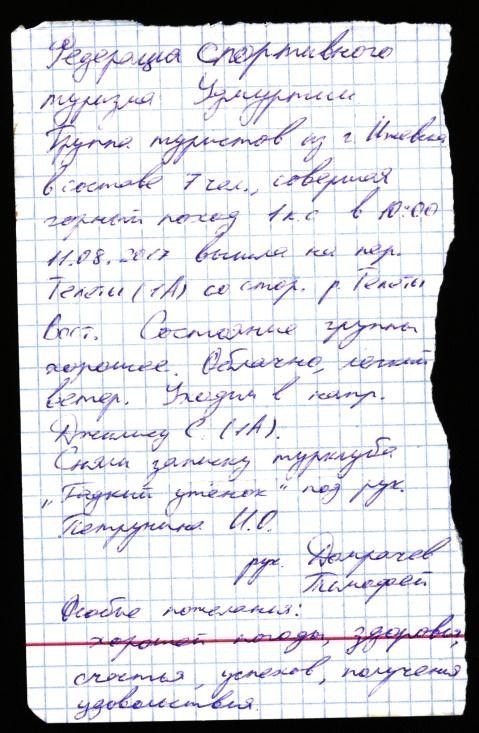 Федерация спортивного
туризма Удмуртии
Группа туристов из г. Ижевска
в составе 7 чел., совершая
горный поход 1 к.с в 10:00
11.08.2017 вышла на пер.
Телеты (1А) со стор. р. Телеты
Вост. Состояние группы
хорошее. Облачно, легкий
ветер. Уходим в напр.
Джалису С. (1А).
Сняли записку турклуба
„Гадкий утёнок" под рук.
Петрунина И.О.
рук. Домрачев
Тимофей
Особые пожелания:
хорошей погоды, здоровья,
счастья, успехов, получения
удовольствия.